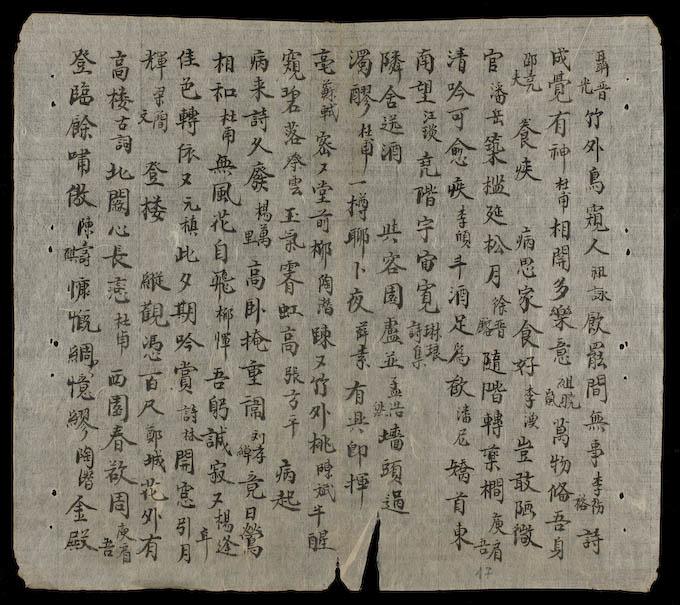 聶晉光竹外鳥窺人祖詠歐罷間無事李防詩
成覺有神杜甫相開多樂意萬物俻吾身
邵堯夫養疾病思家食好李豈敢陋微
官潘岳築檻延松月徐晉隨階轉藥欄庾肩吾
清吟可愈疾李頎斗酒足為歡潘尼矯首東
南望江琰堯階宇宙寬琳琅詩集
隣舍送酒共客園盧並孟浩然墻頭過
濁醪杜甫一樽聊卜夜薛素有興即揮
毫蘇軾密又堂前柳陶潛踈又竹外桃陳斌午醒
窺碧落登雲玉氣霽虹高張方平病起
病来詩久廢楊萬里高卧掩重闈刘孝綽竟日鶯
相和杜甫無風花自飛柳惲吾躬誠寂又楊逢年
佳色轉依又元稹此夕期吟賞詩林開窓引月
輝梁簡文登楼縱觀憑百尺鄭城花外有
高楼古詞北闕心長恋杜甫西園春欲周庾肩吾
登臨餘嘯傲陳詩慷慨綢憶繆陶潛金殿
17